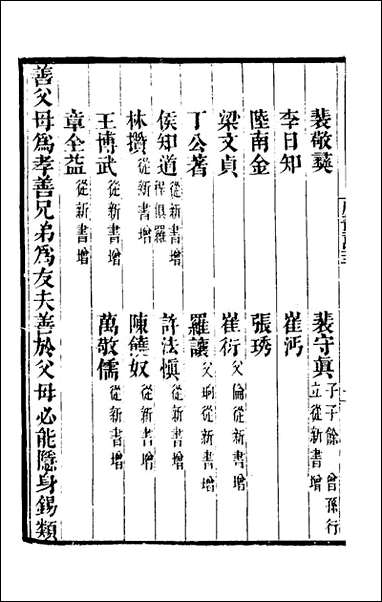 裴敬彝 裴守眞 子子餘 曾孫行立從新書增
李日知 崔沔
陸南金 張琇
梁文貞 崔衍 父倫從新書增
丁公著 羅讓 父珦從新書增
侯知道 從新書增 程俱羅 許法愼 從新書增
林攢 從新書增 陳饒奴 從新書增
王博武 從新書增 萬敬儒 從新書增
章全益 從新書增
善父母爲孝善兄弟爲友夫善於父母必能隱身錫類